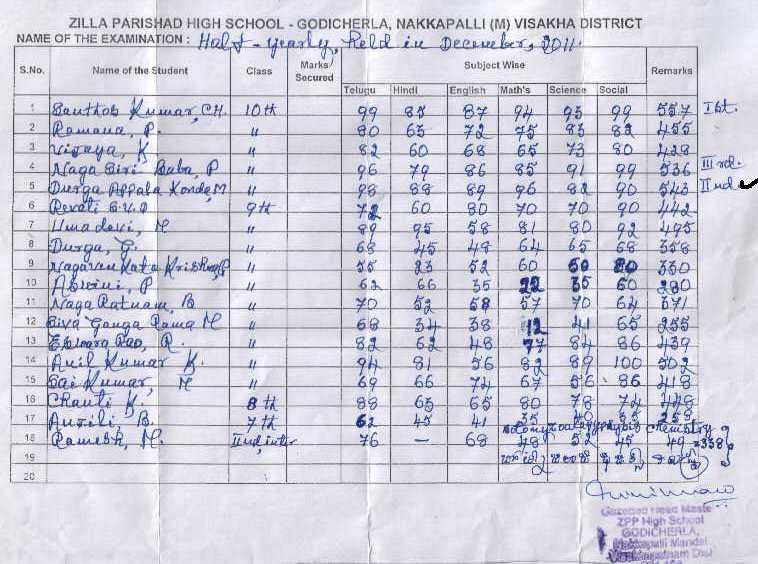 ZILLA PARISHAD HIGH SCHOOL - GODICHERLA, NAKKAPALLI (M) VISAKHA DISTRICT
NAME OF THE EXAMINATION : Half-yearly, Held in December, 2011.
S.No. Name of the Student Class Marks Secured Subject Wise Remarks
Telugu Hindi English Math's Science Social
1 Santhosh Kumar, CH. 10th 99 85 87 94 93 99 557 Ist.
2 Ramana, P. " 80 63 72 75 83 82 455
3 Vijaya, K " 82 60 68 65 73 80 428
4 Naga Siri Baba, P " 96 79 86 85 91 99 536 IIIrd.
5 Durga Appala Konda, M " 98 88 89 96 82 90 543 IInd
6 Revati 9th 72 60 80 70 70 90 442
7 Umadevi, M " 89 95 58 81 80 92 495
8 Durga, G. " 68 45 48 64 65 68 358
9 " 55 23 52 60 50 80 330
10 Aswini, P " 62 66 35 22 35 60 280
11 Naga Ratnam, B " 70 52 58 57 70 64 371
12 Siva Ganga Rama M " 68 34 38 12 41 65 255
13 Eswara Rao, R. " 82 62 48 77 84 86 439
14 Anil Kumar K. " 94 81 56 82 89 100 502
15 Sai Kumar, M " 69 66 74 67 56 86 418
16 Chanti K. 8th 88 63 65 80 78 74 448
17 B. 7th 62 45 41 35 40 35 258
Zoology physics chemistry
18 Ramesh, M. IInd inter 76 – 68 48 52 45 49 =338
19
20
Gazetted Head Maste
ZPP High School
GODICHERLA,
Nakkapalli Mandal
Visakhapatnam Dist